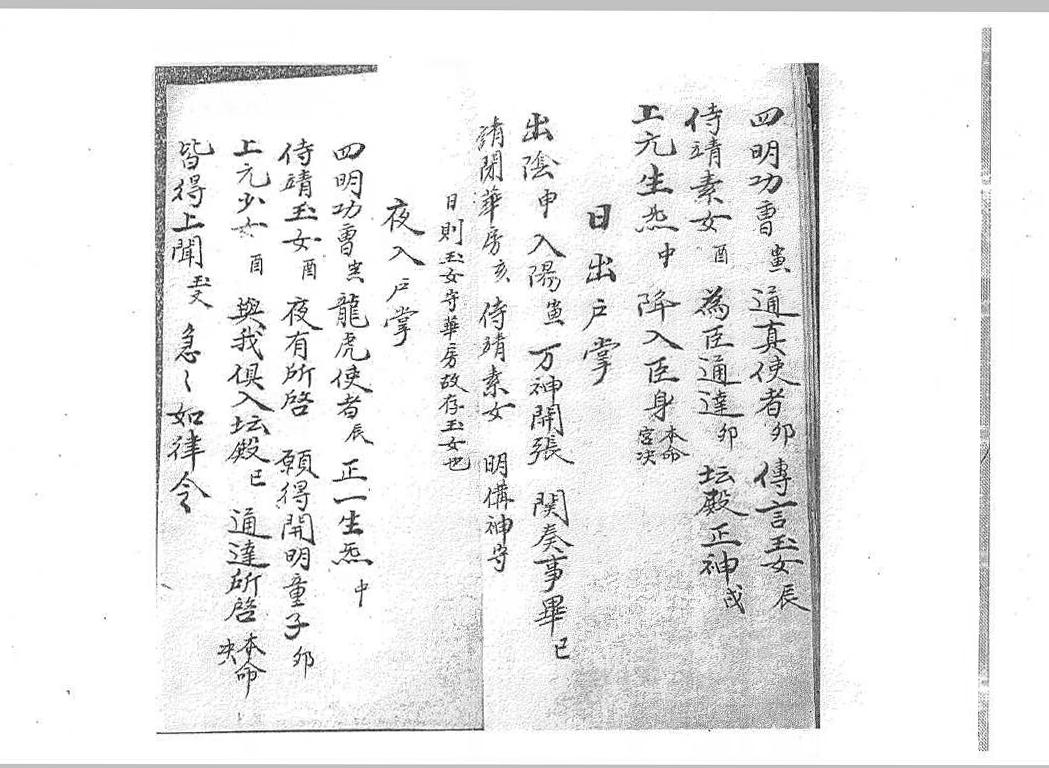 四明功曹 通真使者 卯 傳言玉女 辰
侍靖素女 酉 為臣通達 卯 坛殿正神 戌
上元生炁 中 降入臣身 本命宮决
日出户掌
出陰申 入陽 万神開張 関奏事畢 巳
請閉華房 亥 侍靖素女 明備神守
日則玉女守華房故存玉女也
夜入户掌
四明功曹 龍虎使者 辰 正一生炁 中
侍靖玉女 酉 夜有所啓 願得開明童子 卯
上元少女 酉 與我俱入坛殿 巳 通達所啓 本命决
皆得上聞 玉文 急〻如律令